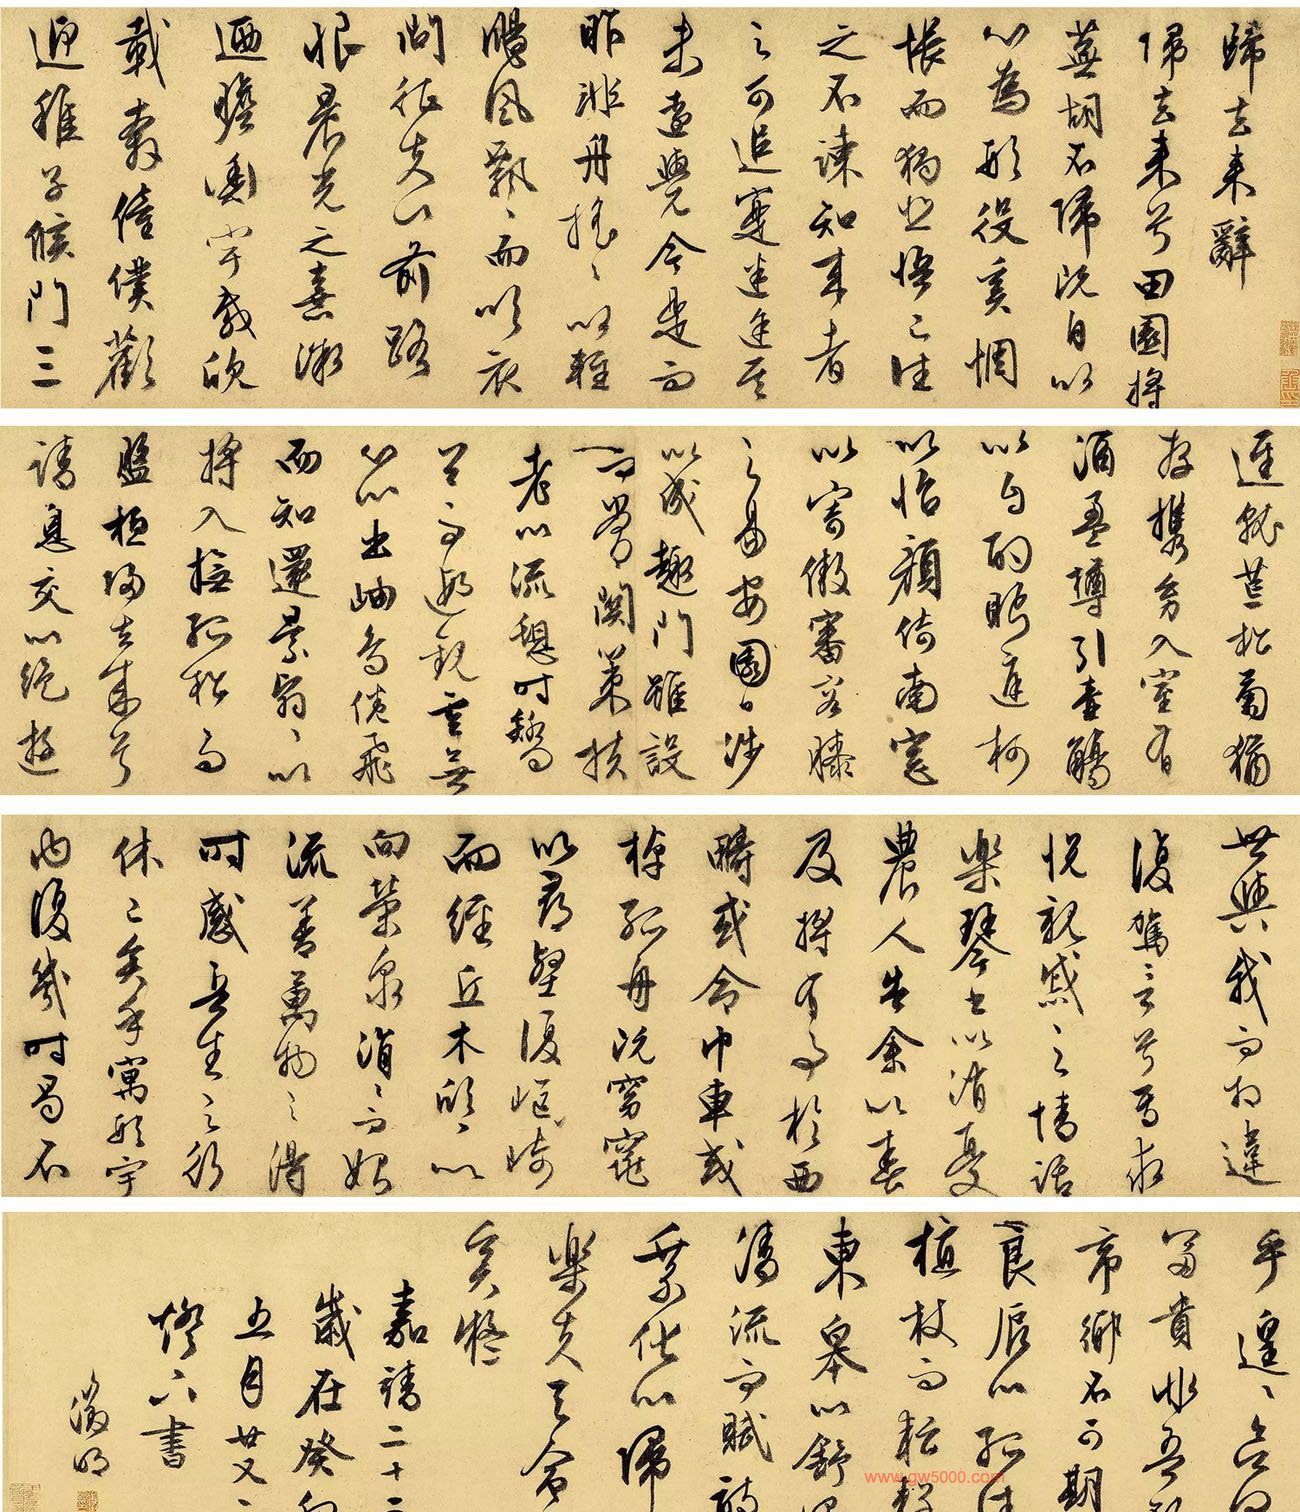 歸去来辭
歸去来兮田園將
蕪胡不歸既自以
心為形役奚惆
悵而獨悲悟已往
之不諫知来者
之可追寔迷途其
未遠覺今是而
昨非舟搖〻以輕
颺風飄〻而吹衣
問征夫以前路
恨晨光之熹微
迺瞻衡宇載欣
載奔僮僕歡
迎稚子候門三
逕就荒松菊猶
存攜幼入室有
酒盈樽引壺觴
以自酌眄庭柯
以怡顏倚南窓
以寄傲審容膝
之易安園日涉
以成趣門雖設
而常關策扶
老以流憩時矯
首而遐觀雲無
心以出岫鳥倦飛
而知還景翳〻以
將入撫孤松而
盤桓歸去来兮
請息交以絶遊
世與我而相違
復駕言兮焉求
悅親戚之情話
樂琴書以消憂
農人告余以春
及將有事於西
疇或命巾車或
棹孤舟既窈窕
以尋壑復嶇崎
而經丘木欣〻以
向榮泉涓〻而始
流善萬物之得
時感吾生之行
休已矣乎寓形宇
內復幾時曷不
乎遑〻欲何
富貴非吾願
帝鄉不可期
良辰以孤往
植杖而耘耔
東皋以舒嘯
清流而賦詩
乘化以歸
樂夫天命
奚疑
嘉靖二十二
歲在癸卯
五月廿又二
燈下書
徵明
www.gw5000.com